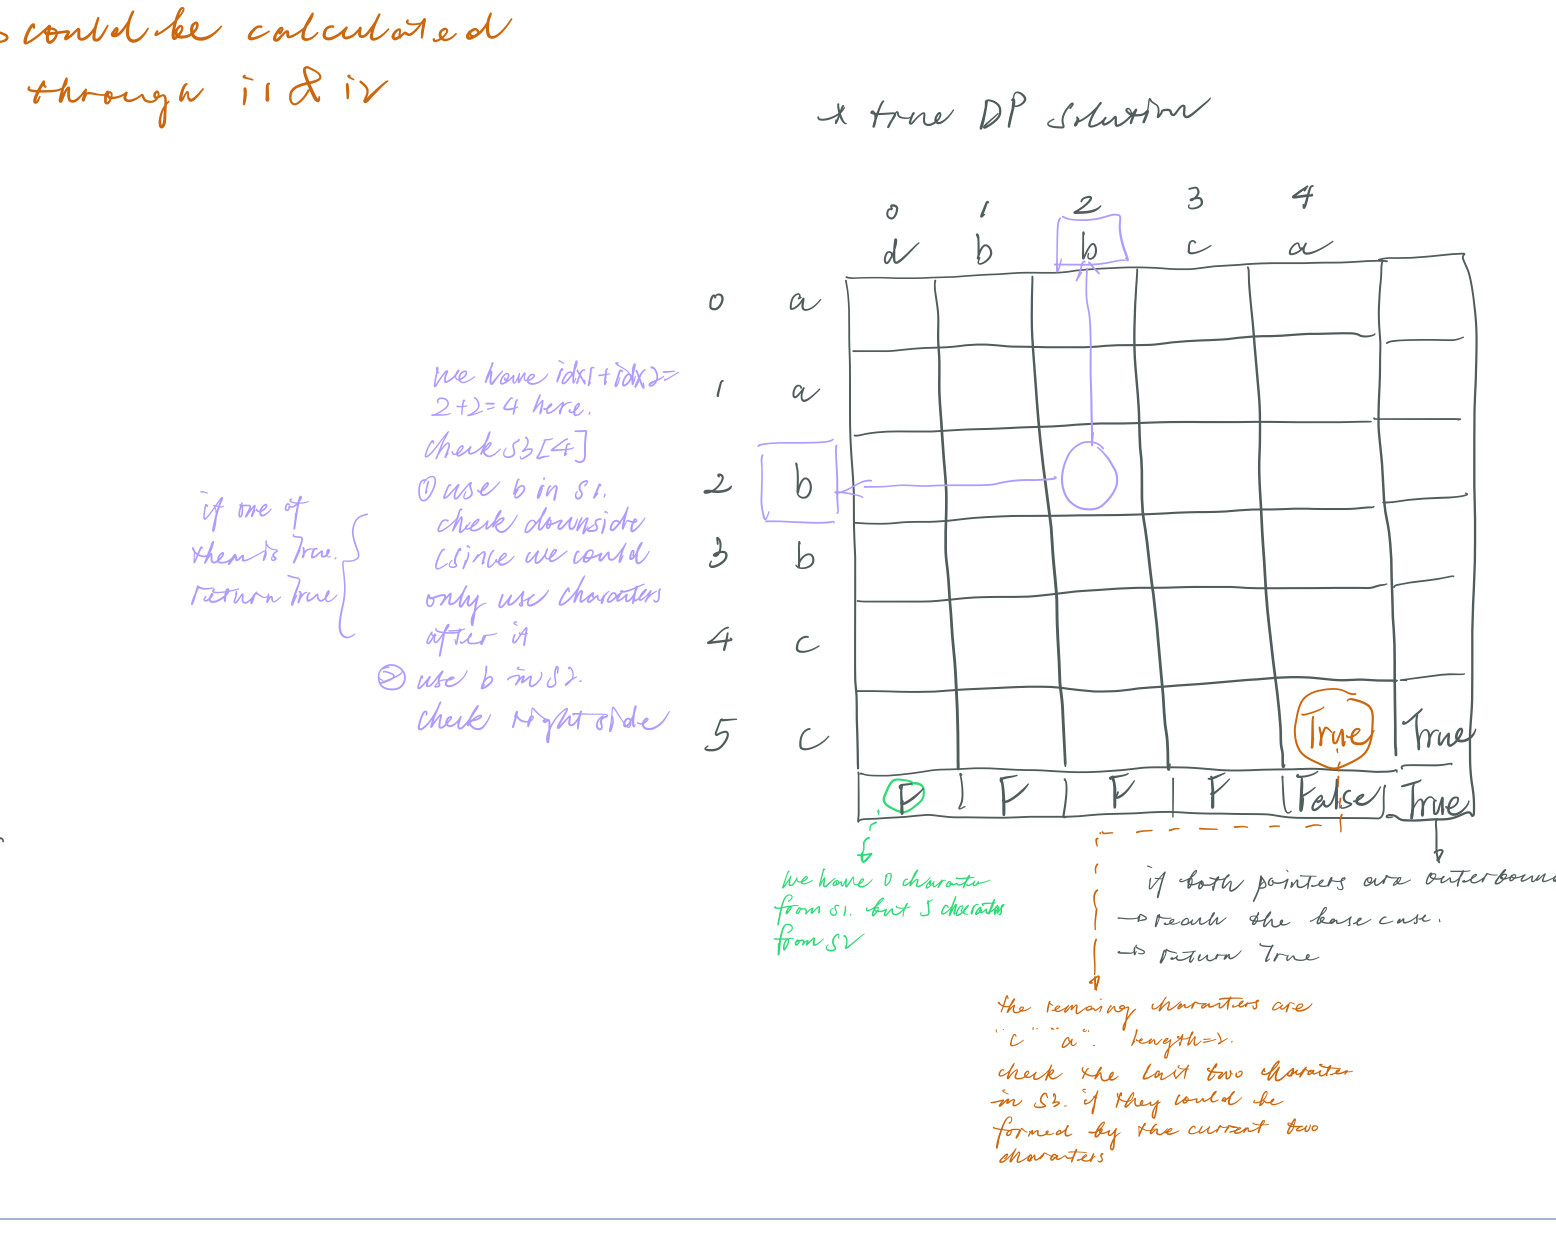 could be calculated
through i1 & i2
* true DP solution
0 1 2 3 4
d b b c a
0 a
1 a
2 b
3 b
4 c
5 c
we have idx1+idx2=
2+2=4 here.
check S3[4]
① use b in S1.
check downside
(since we could
only use characters
after it
② use b in S2.
check right side
if one of
them is True.
return True
True True
F F F F False True
we have 0 character
from S1. but 5 characters
from S2
if both pointers are outerbound
→ reach the base case.
→ return True
the remaing characters are
"c" "a". length=2.
check the last two character
in S3. if they could be
formed by the current two
characters